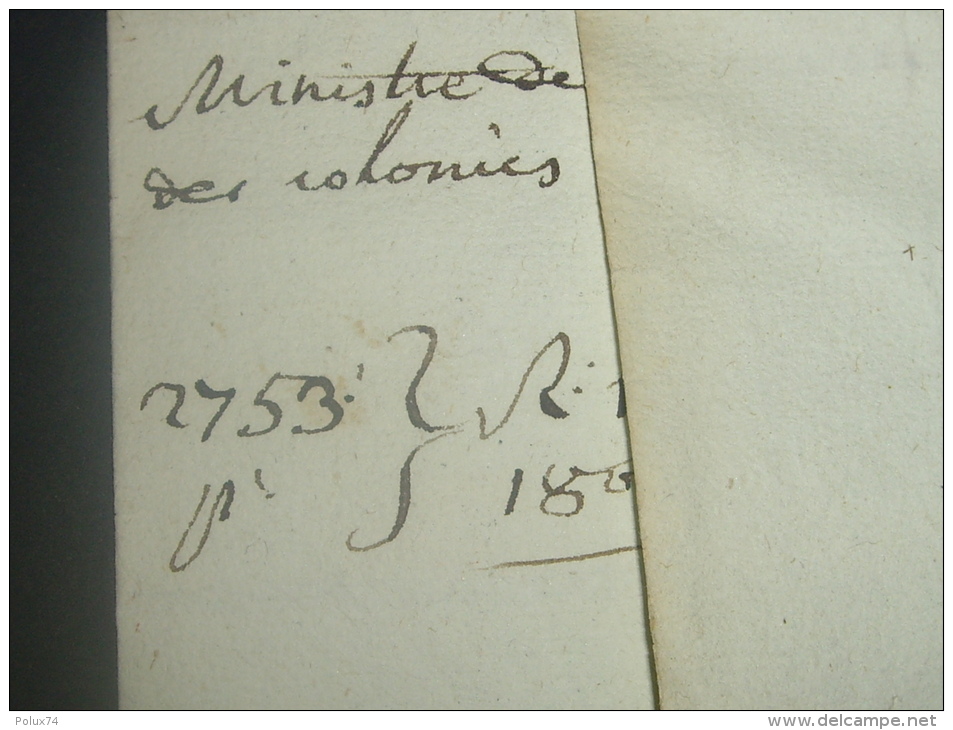 Ministre de
des colonies
2753 } R. 1
p. 180
Polux74
www.delcampe.net